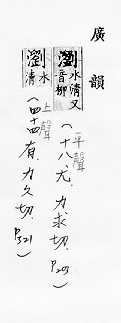 廣韻
瀏 水清又音柳
(平聲十八.尤.力求切.P.205)
瀏 水清
(上聲四十四有.力久切.P321)